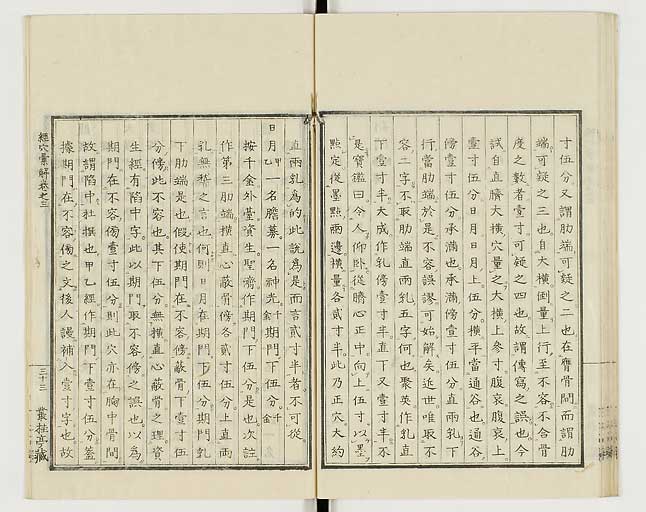 寸伍分又謂肋端可疑之二也在膺骨間而謂肋
端可疑之三也自大橫倒量上行至不容不合骨
度之數者壹寸可疑之四也故謂傳寫之誤也今
試自直臍大橫穴量之大橫上參寸腹哀腹哀上
壹寸伍分日月日月上伍分橫平當通谷也通谷
傍壹寸伍分承滿也承滿傍壹寸伍分直兩乳下
行當肋端於是不容誤謬可始解矣近世唯取不
容二字不取肋端直兩乳五字何也聚英作乳直
下壹寸半大成作乳傍壹寸半直下又壹寸半不
是寶鑑曰令人仰卧從臍心正中向上伍寸以墨
點定從墨點兩邊橫量各貳寸半此乃正穴大約
直兩乳為的此說為是而言貳寸半者不可從
日月甲乙一名膽募一名神光千金期門下伍分千金
按千金外臺資生聖濟作期門下伍分是也次註
作第三肋端橫直心蔽骨傍各貳寸伍分上直兩
乳無稽之言也何則日月在期門下伍分期門乳
下肋端是也假使期門在不容傍蔽骨下壹寸伍
分傍此不容也其下伍分無橫直心蔽骨之理資
生經有陷中字此以期門取不容傍之誤也以為
期門在不容傍壹寸伍分則此穴亦在胸中骨間
故謂陷中杜撰也甲乙經作期門下壹寸伍分蓋
據期門在不容傍之文後人謾補入壹寸字也故
經穴彙解卷之三
三十三
叢桂亭藏